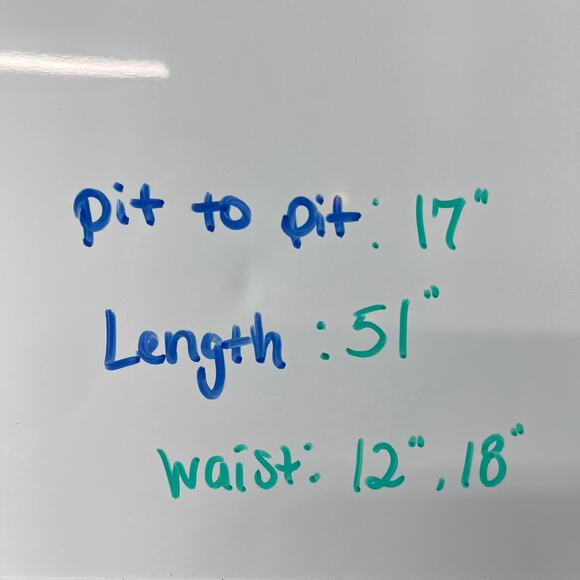 pit to pit: 17"
Length: 51"
waist: 12", 18"